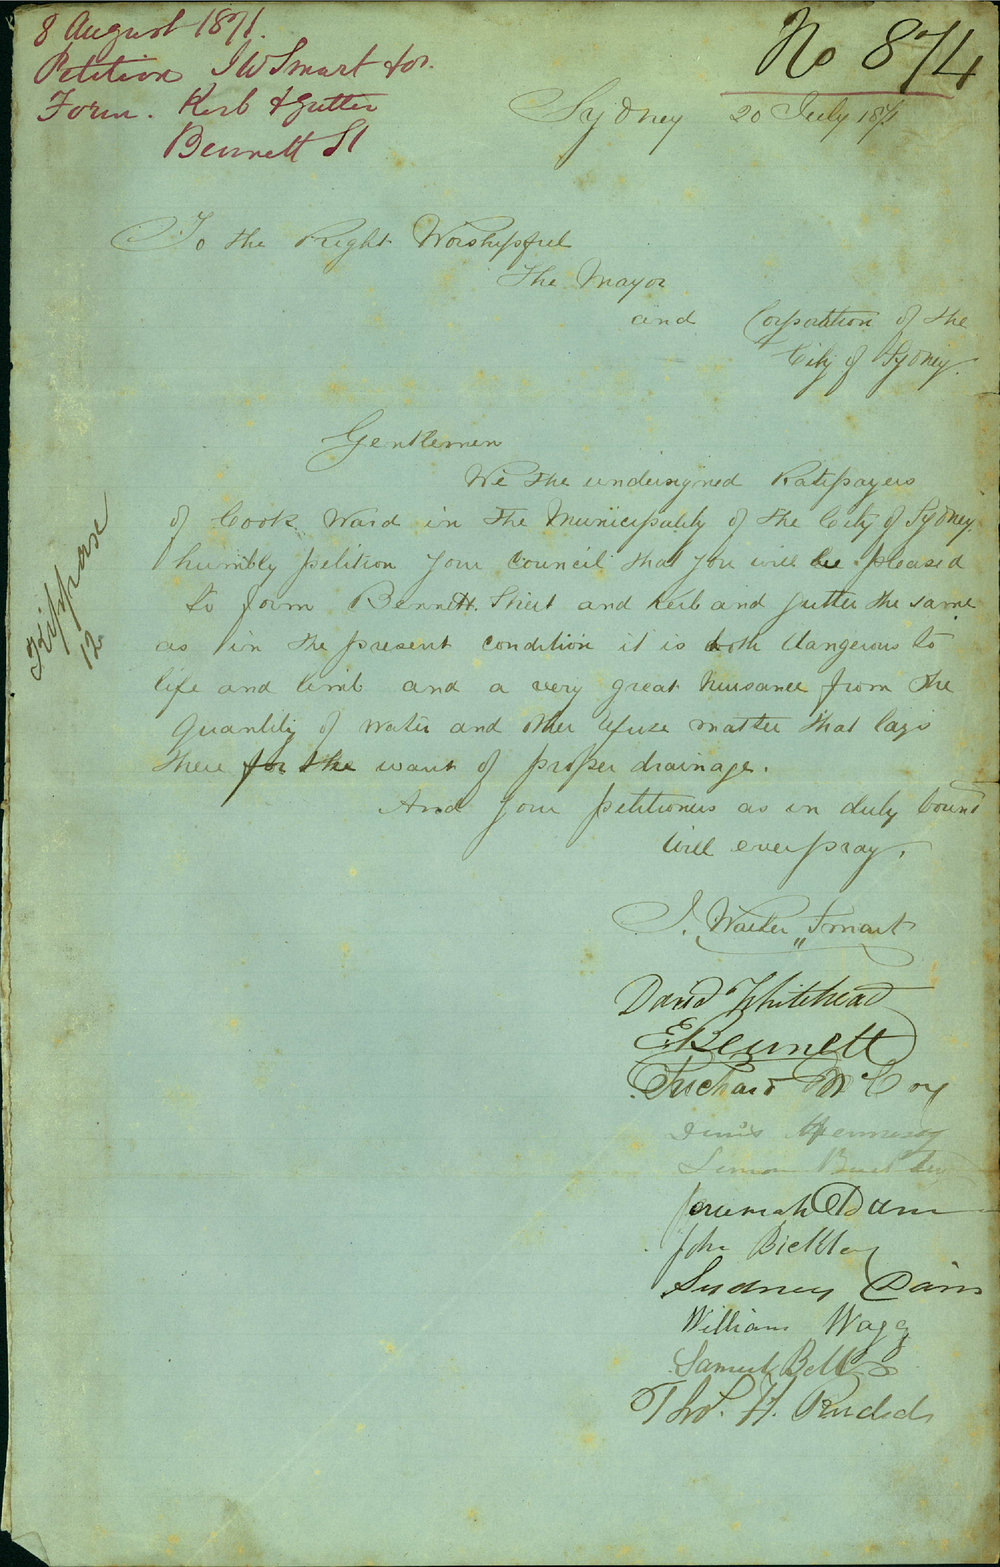 8 August 1871.
Petition J W Smart & or.
Form. Kerb & Gutter
Bennett St
No 874
Sydney 20 July 1871
To the Right Worshipful
The Mayor
and Corporation of the
City of Sydney.
Gentlemen
We the undersigned Ratepayers
of Cook Ward in the Municipality of the City of Sydney
humbly petition your council that you will be pleased
to form Bennett Street and Kerb and gutter the same
as in the present condition it is both dangerous to
life and limb and a very great nuisance from the
quantity of water and other refuse matter that lays
there for the want of proper drainage.
And your petitioners as in duty bound
will ever pray.
Kippax
12
J. Walter Smart
David Whitehead
E Bennett
Richard McCoy
Denis Hennessy
Simon
Jeremiah
John Bickley
Sydney Davis
William Wagg
Samuel Bell
Thos. H.